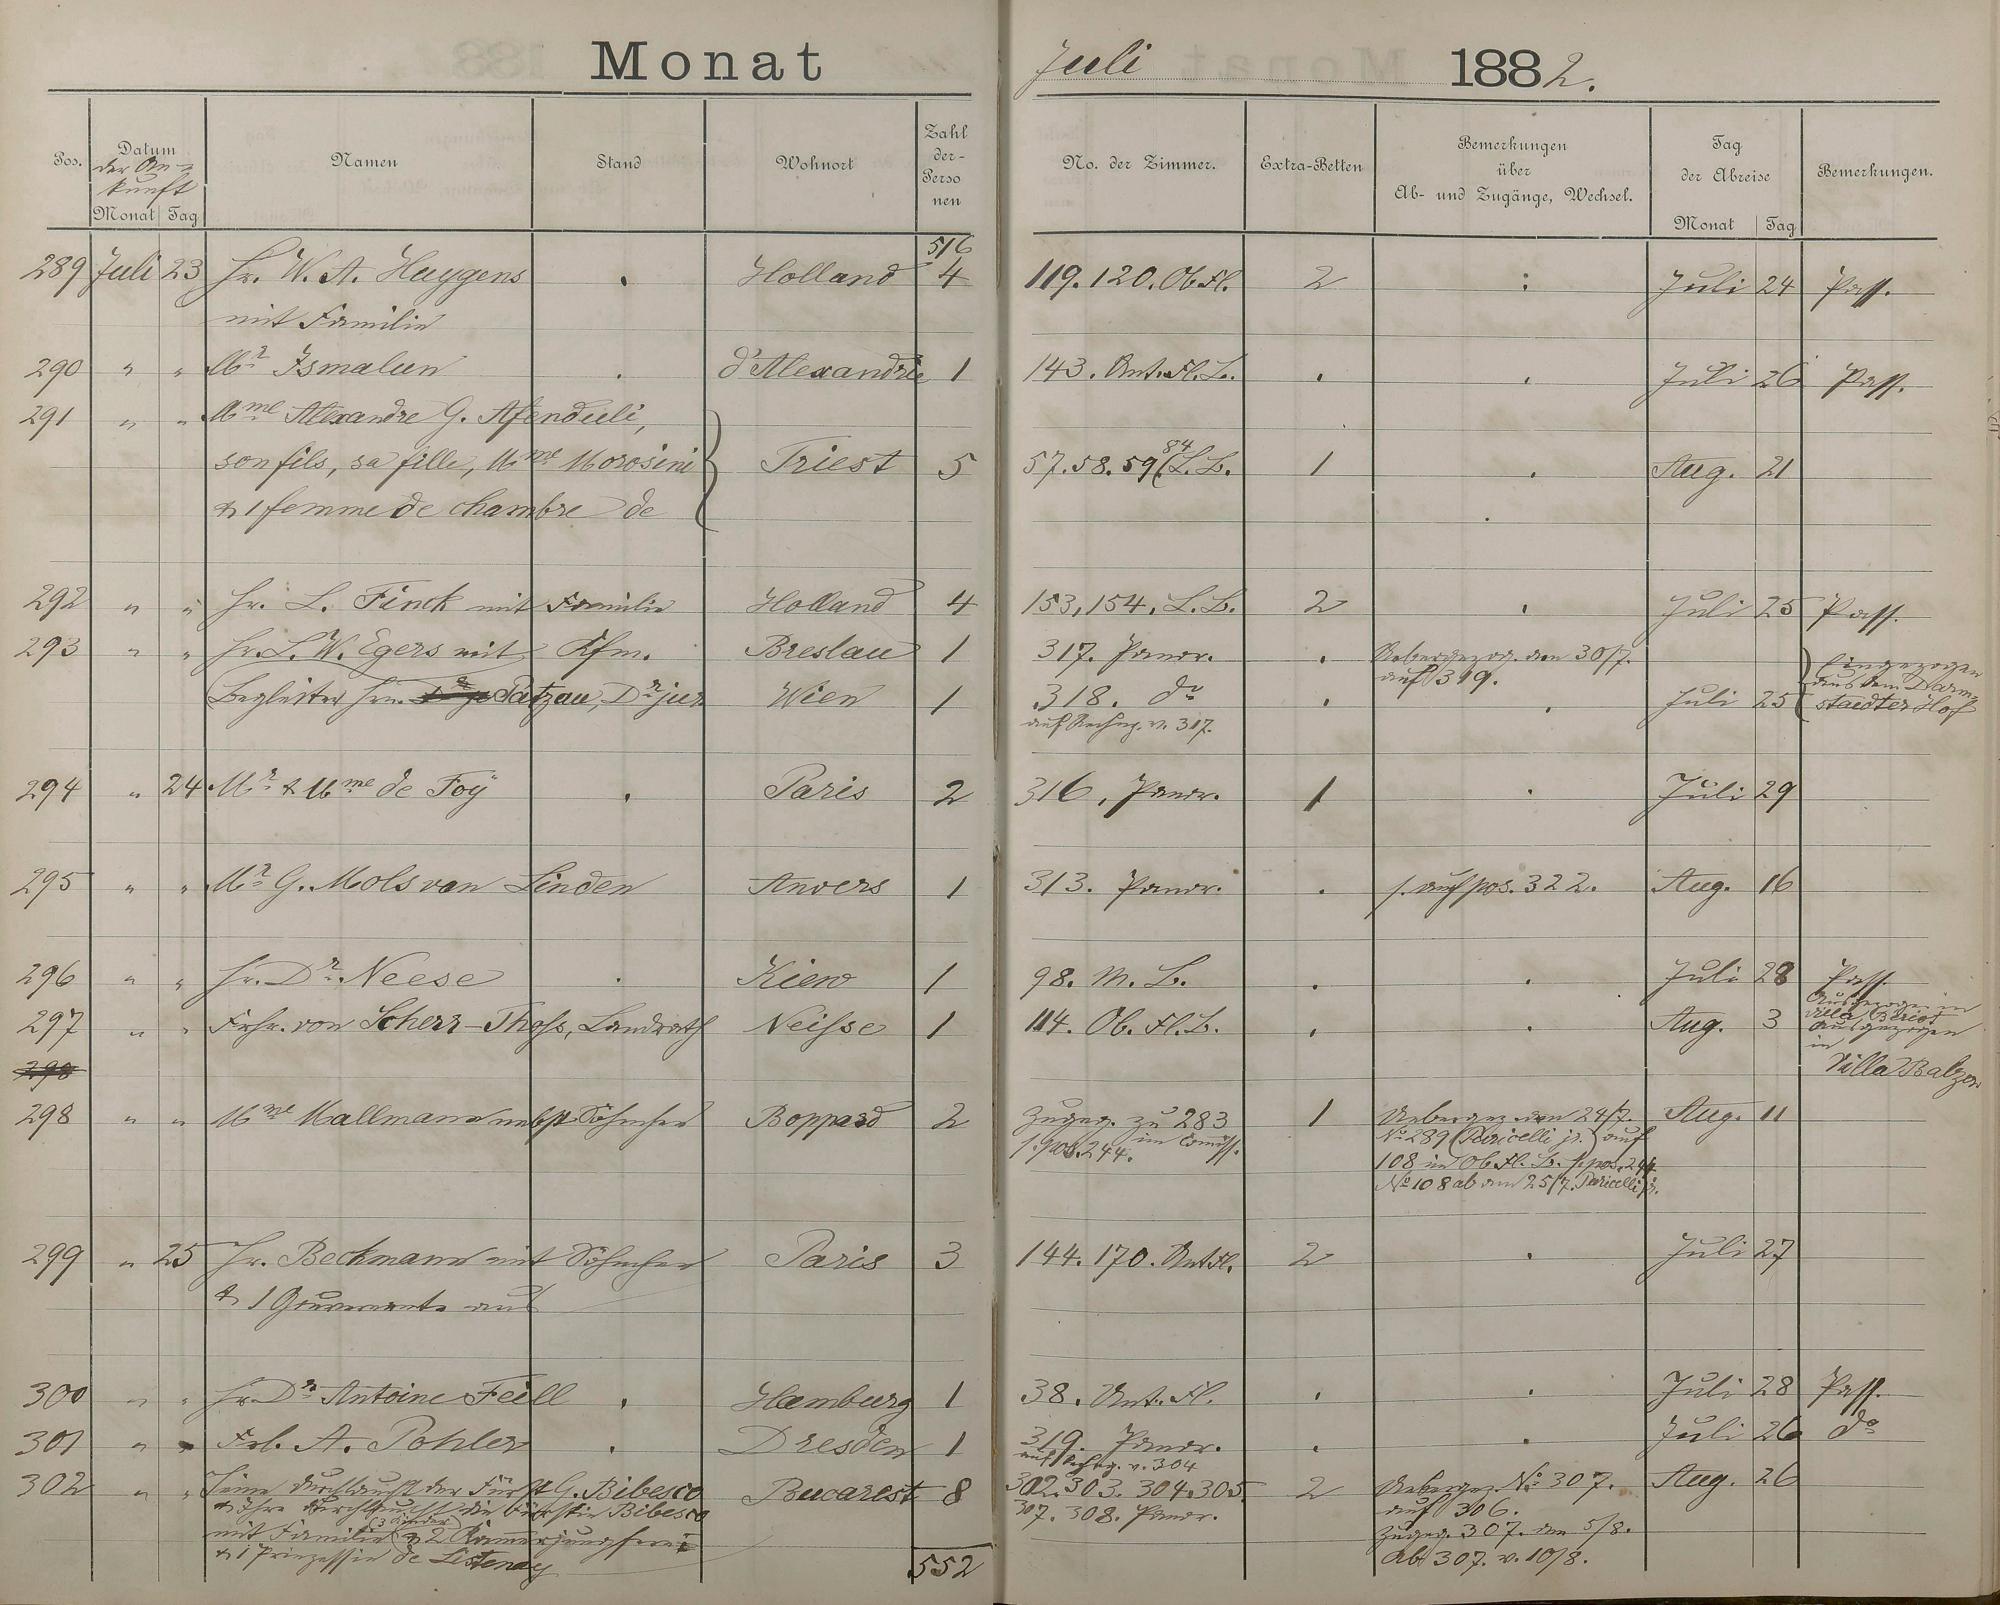 Monat Juli 1882.
Pos. Datum der Ankunft Monat Tag Namen Stand Wohnort Zahl der Personen No. der Zimmer. Extra-Betten Bemerkungen über Ab- und Zugänge, Wechsel. Tag der Abreise Monat Tag Bemerkungen.
516
289 Juli 23 Hr. W. A. Huygens . Holland 4 119. 120. Ob. Fl. 2 : Juli 24 Pass.
mit Familie
290 " " Mr. Ismalun . d'Alexandrie 1 143. Unt. Fl. L. . . Juli 26 Pass.
291 " " Mme Alexandre G. Afenduli,
son fils, sa fille, Mme Morosini Triest 5 57. 58. 59 (84 L. B. 1 . Aug. 21
& 1 femme de chambre de .
292 " " Hr. L. Finck mit Familie Holland 4 153, 154, L. B. 2 . Juli 25 Pass.
293 " " Hr. L. W. Egers mit Kfm. Breslau 1 317. Panor. . Uebergezog. den 30/7. auf 319. Eingezogen aus dem Darmstaedter Hof
Begleiter Hrn. Patzau, Dr jur Wien 1 318. do . . Juli 25
auf Rechng. v. 317.
294 " 24 Mr & Mme de Foÿ . Paris 2 316, Panor. 1 . Juli 29
295 " " Mr G. Mols van Linden Anvers 1 313. Panor. . s. auf pos. 322. Aug. 16
296 " " Hr. Dr. Neese . Kiew 1 98. M. B. . . Juli 28 Pass.
297 " " Frhr. von Scherr-Thoss, Landrath Neisse 1 114. Ob. Fl. B. . . Aug. 3 ausgezogen in
Villa Balzer
298
298 " " Mme Mallmann nebst Söhnchen Boppard 2 Zugeg. zu 283 1 Uebergez. den 24/7. Aug. 11
s. pos. 244. No 289 (Paricelli jr.) auf
108 im Ob. Fl. B. s. pos. 244
No 108 ab den 25/7. Paricelli jr.
299 " 25 Hr. Beckmann mit Söhnchen Paris 3 144. 170. Unt. Fl. 2 . Juli 27
& 1 Gouvernante aus
300 " " Hr. Dr Antoine Feill . Hamburg 1 38. Unt. Fl. . . Juli 28 Pass.
301 " " Frl. A. Pohler . Dresden 1 319. Panor. . . Juli 26 do
auf Rechng. v. 304
302 " " Seine Durchlaucht der Fürst G. Bibesco Bucarest 8 302. 303. 304. 305. 2 Uebergez. No 307. Aug. 26
& Ihre Durchlaucht die Fürstin Bibesco 307. 308. Panor. auf 306.
mit Familie (3 Kinder) & 2 Kammerjungfern Zugeg. 307. den 5/8.
& 1 Prinzessin de Listenay Ab 307. v. 10/8.
552